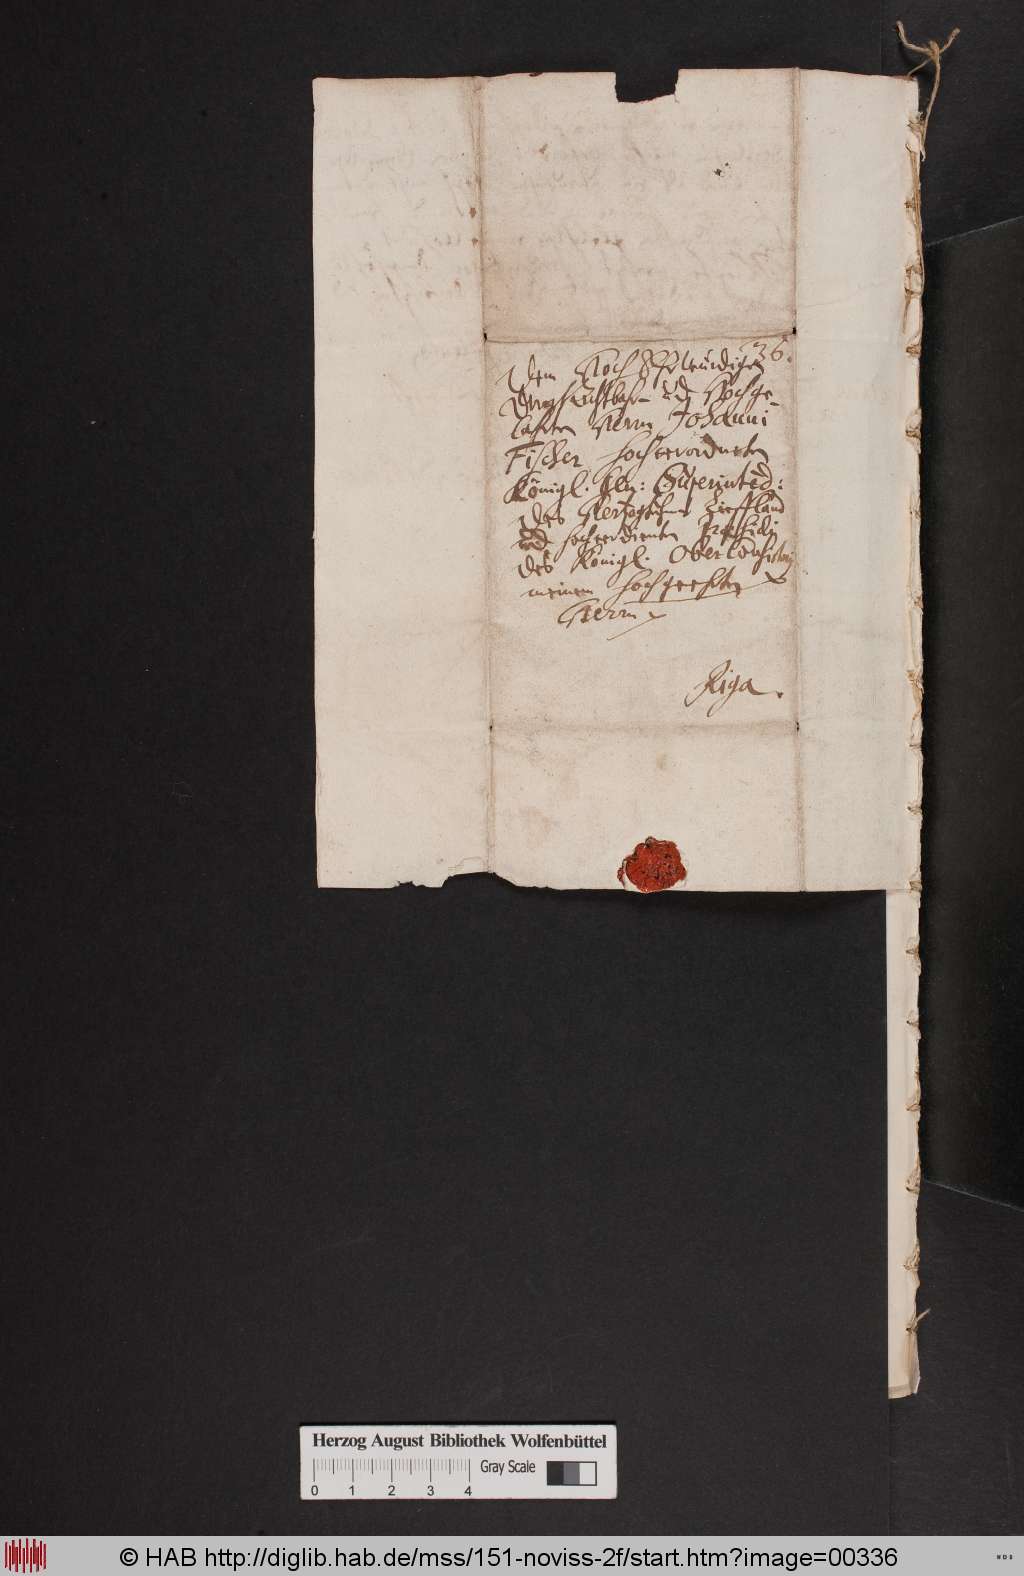 36.
Dem HochEhrwürdigen
Großachtbahrn und Hochge-
lahrten Herrn Johanni
Fischer hochverordneten
Königl. Superintend:
des Hertzogthums Liefland
und hochverdienten Præsidi
des Königl. Ober Consistorij
meinem hochgeehrten
Herrn
Riga.
Herzog August Bibliothek Wolfenbüttel
Gray Scale
0 1 2 3 4
© HAB http://diglib.hab.de/mss/151-noviss-2f/start.htm?image=00336